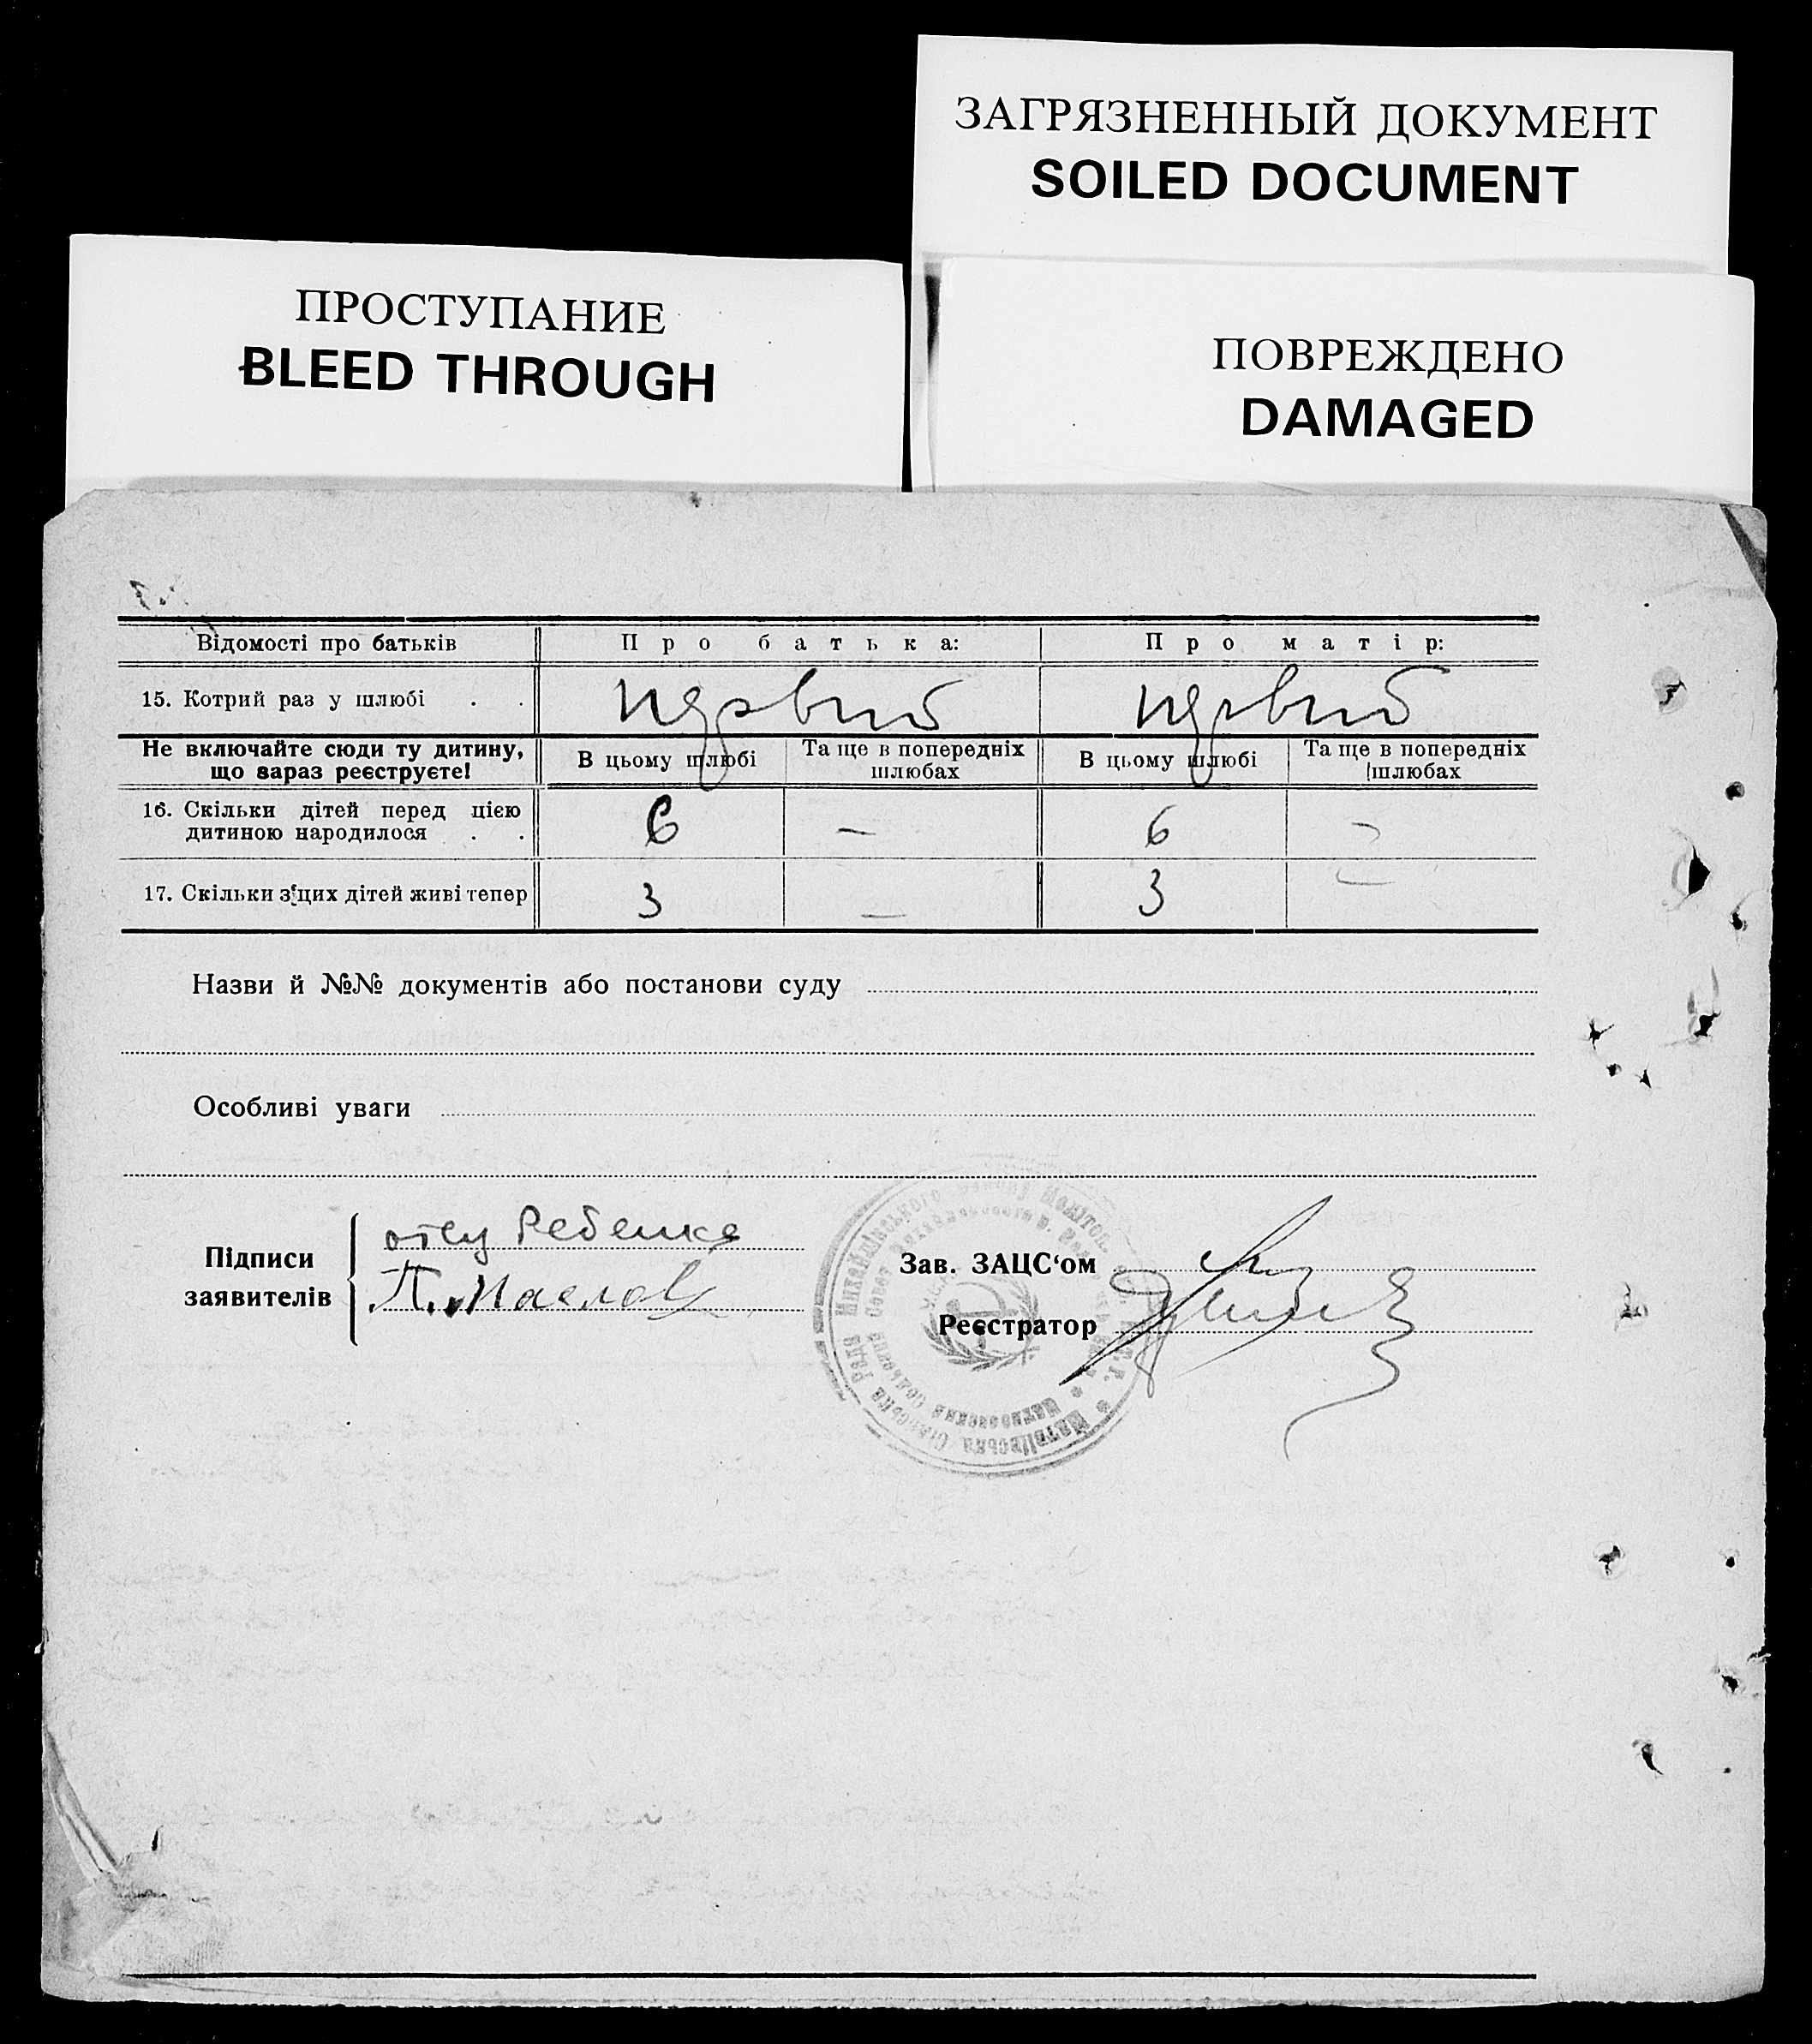 ЗАГРЯЗНЕННЫЙ ДОКУМЕНТ
SOILED DOCUMENT
ПРОСТУПАНИЕ
BLEED THROUGH
ПОВРЕЖДЕНО
DAMAGED
Відомості про батьків Про батька: Про матір:
15. Котрий раз у шлюбі . . первий первий
Не включайте сюди ту дитину, що зараз реєструєте! В цьому шлюбі Та ще в попередніх шлюбах В цьому шлюбі Та ще в попередніх шлюбах
16. Скільки дітей перед цією
дитиною народилося . . 6 — 6 —
17. Скільки з цих дітей живі тепер 3 — 3 —
Назви й №№ документів або постанови суду
Особливі уваги
Підписи заявителів
отец Ребенка
П. Маслов
Зав. ЗАЦС‘ом
Реєстратор